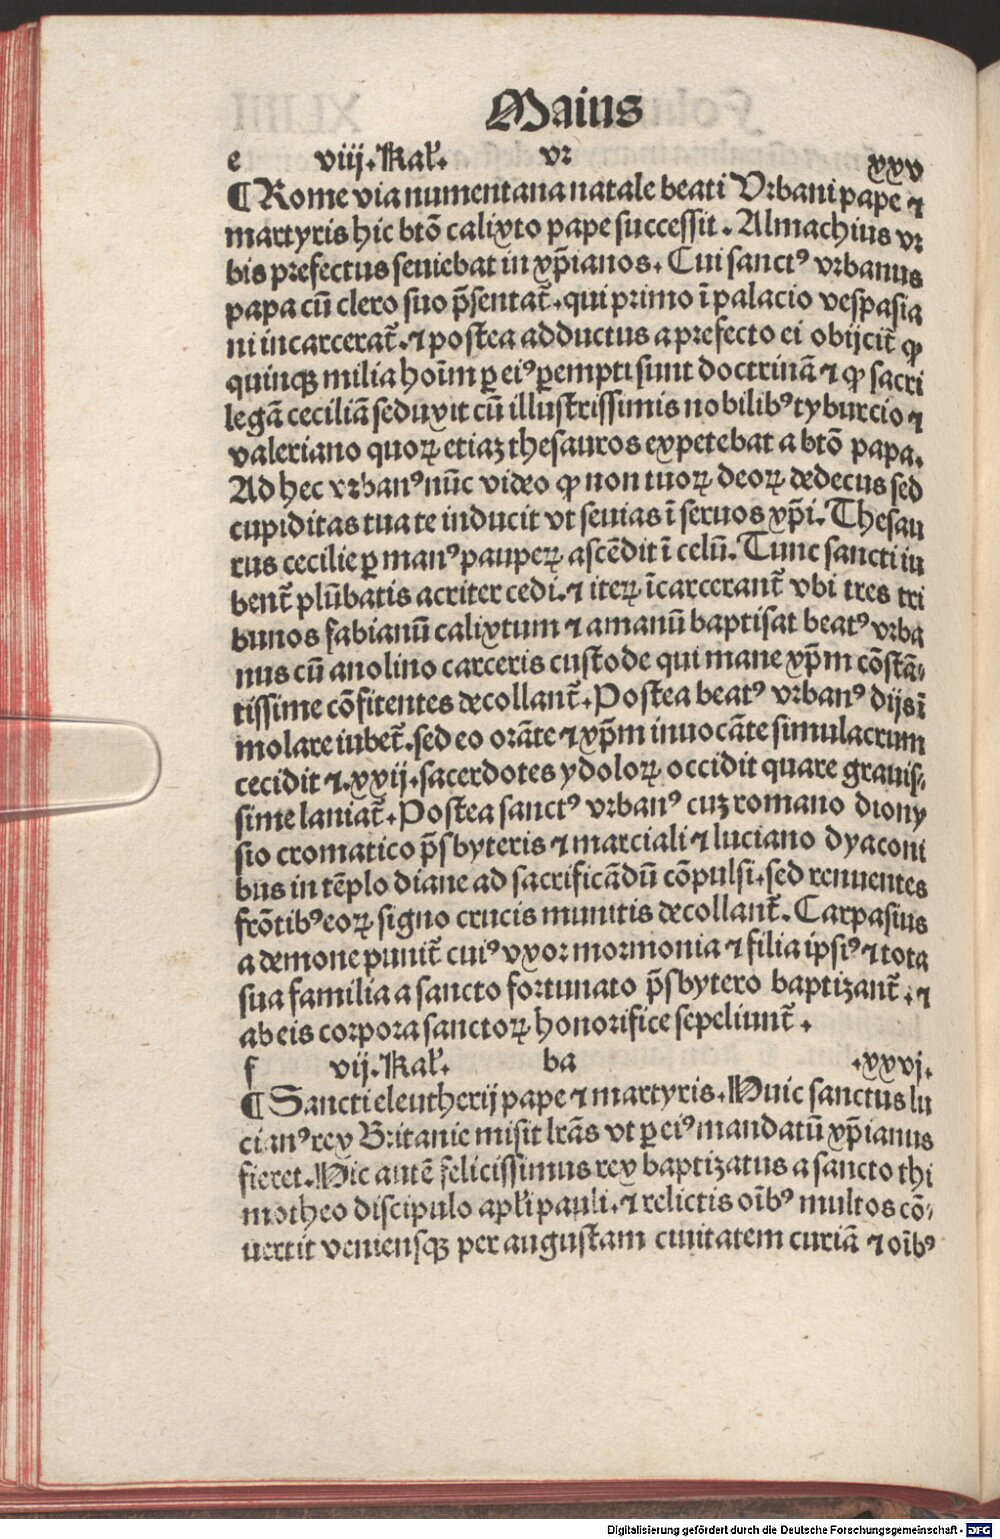 Maius
e viij. Kal̃. vr xxv
¶ Rome via numentana natale beati Vrbani pape ⁊
martyris hic btō calixto pape successit. Almachius vr
bis prefectus seuiebat in xp̄ianos. Cui sanctꝰ vrbanus
papa cū clero suo p̄sentat̃. qui primo ī palacio vespasia
ni incarcerat̃. ⁊ postea adductus a prefecto ei obijcit̃ ꝙ
quinqꝫ milia hoīm ꝑ eiꝰ ꝑempti sunt doctrinā ⁊ ꝙ sacri
legā ceciliā seduxit cū illustrissimis nobilibꝰ tyburcio ⁊
valeriano quoꝝ etiaꝫ thesauros expetebat a btō papa.
Ad hec vrbanꝰ nūc video ꝙ non tuoꝝ deoꝝ dedecus sed
cupiditas tua te inducit vt seuias ī seruos xp̄i. Thesau
rus cecilie ꝑ manꝰ paupeꝝ ascēdit ī celū. Tunc sancti iu
bent̃ plūbatis acriter cedi. ⁊ iteꝝ īcarcerant̃ vbi tres tri
bunos fabianū calixtum ⁊ amanū baptisat beatꝰ vrba
nus cū anolino carceris custode qui mane xp̄m cōstā-
tissime cōfitentes decollant̃. Postea beatꝰ vrbanꝰ dijs ī
molare iubet̃. sed eo orāte ⁊ xp̄m inuocāte simulacrum
cecidit ⁊ .xxij. sacerdotes ydoloꝝ occidit quare grauis-
sime laniat̃. Postea sanctꝰ vrbanꝰ cuꝫ romano diony
sio cromatico p̄sbyteris ⁊ marciali ⁊ luciano dyaconi
bus in tēplo diane ad sacrificādū cōpulsi. sed renuentes
frōtibꝰ eoꝝ signo crucis munitis decollant̃. Carpasius
a demone punit̃ cuiꝰ vxor mormonia ⁊ filia ipsiꝰ ⁊ tota
sua familia a sancto fortunato p̄sbytero baptizant̃. ⁊
ab eis corpora sanctoꝝ honorifice sepeliunt̃.
f vij. Kal̃. ba .xxvj.
¶ Sancti eleutherij pape ⁊ martyris. Huic sanctus lu
cianꝰ rex Britanie misit lrās vt ꝑ eiꝰ mandatū xp̄ianus
fieret. Hic autē felicissimus rex baptizatus a sancto thi
motheo discipulo apl̃i pauli. ⁊ relictis oībꝰ multos cō-
uertit veniensqꝫ per augustam ciuitatem curiā ⁊ oībꝰ
Digitalisierung gefördert durch die Deutsche Forschungsgemeinschaft - DFG